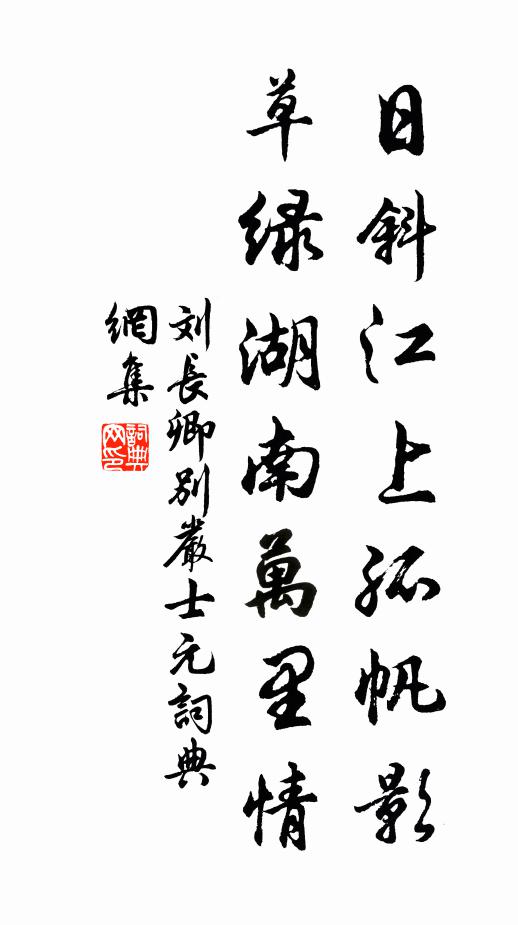 日斜江上孤帆影
草绿湖南萬里情
刘長卿别嚴士元詞典
網集
詞典
网印